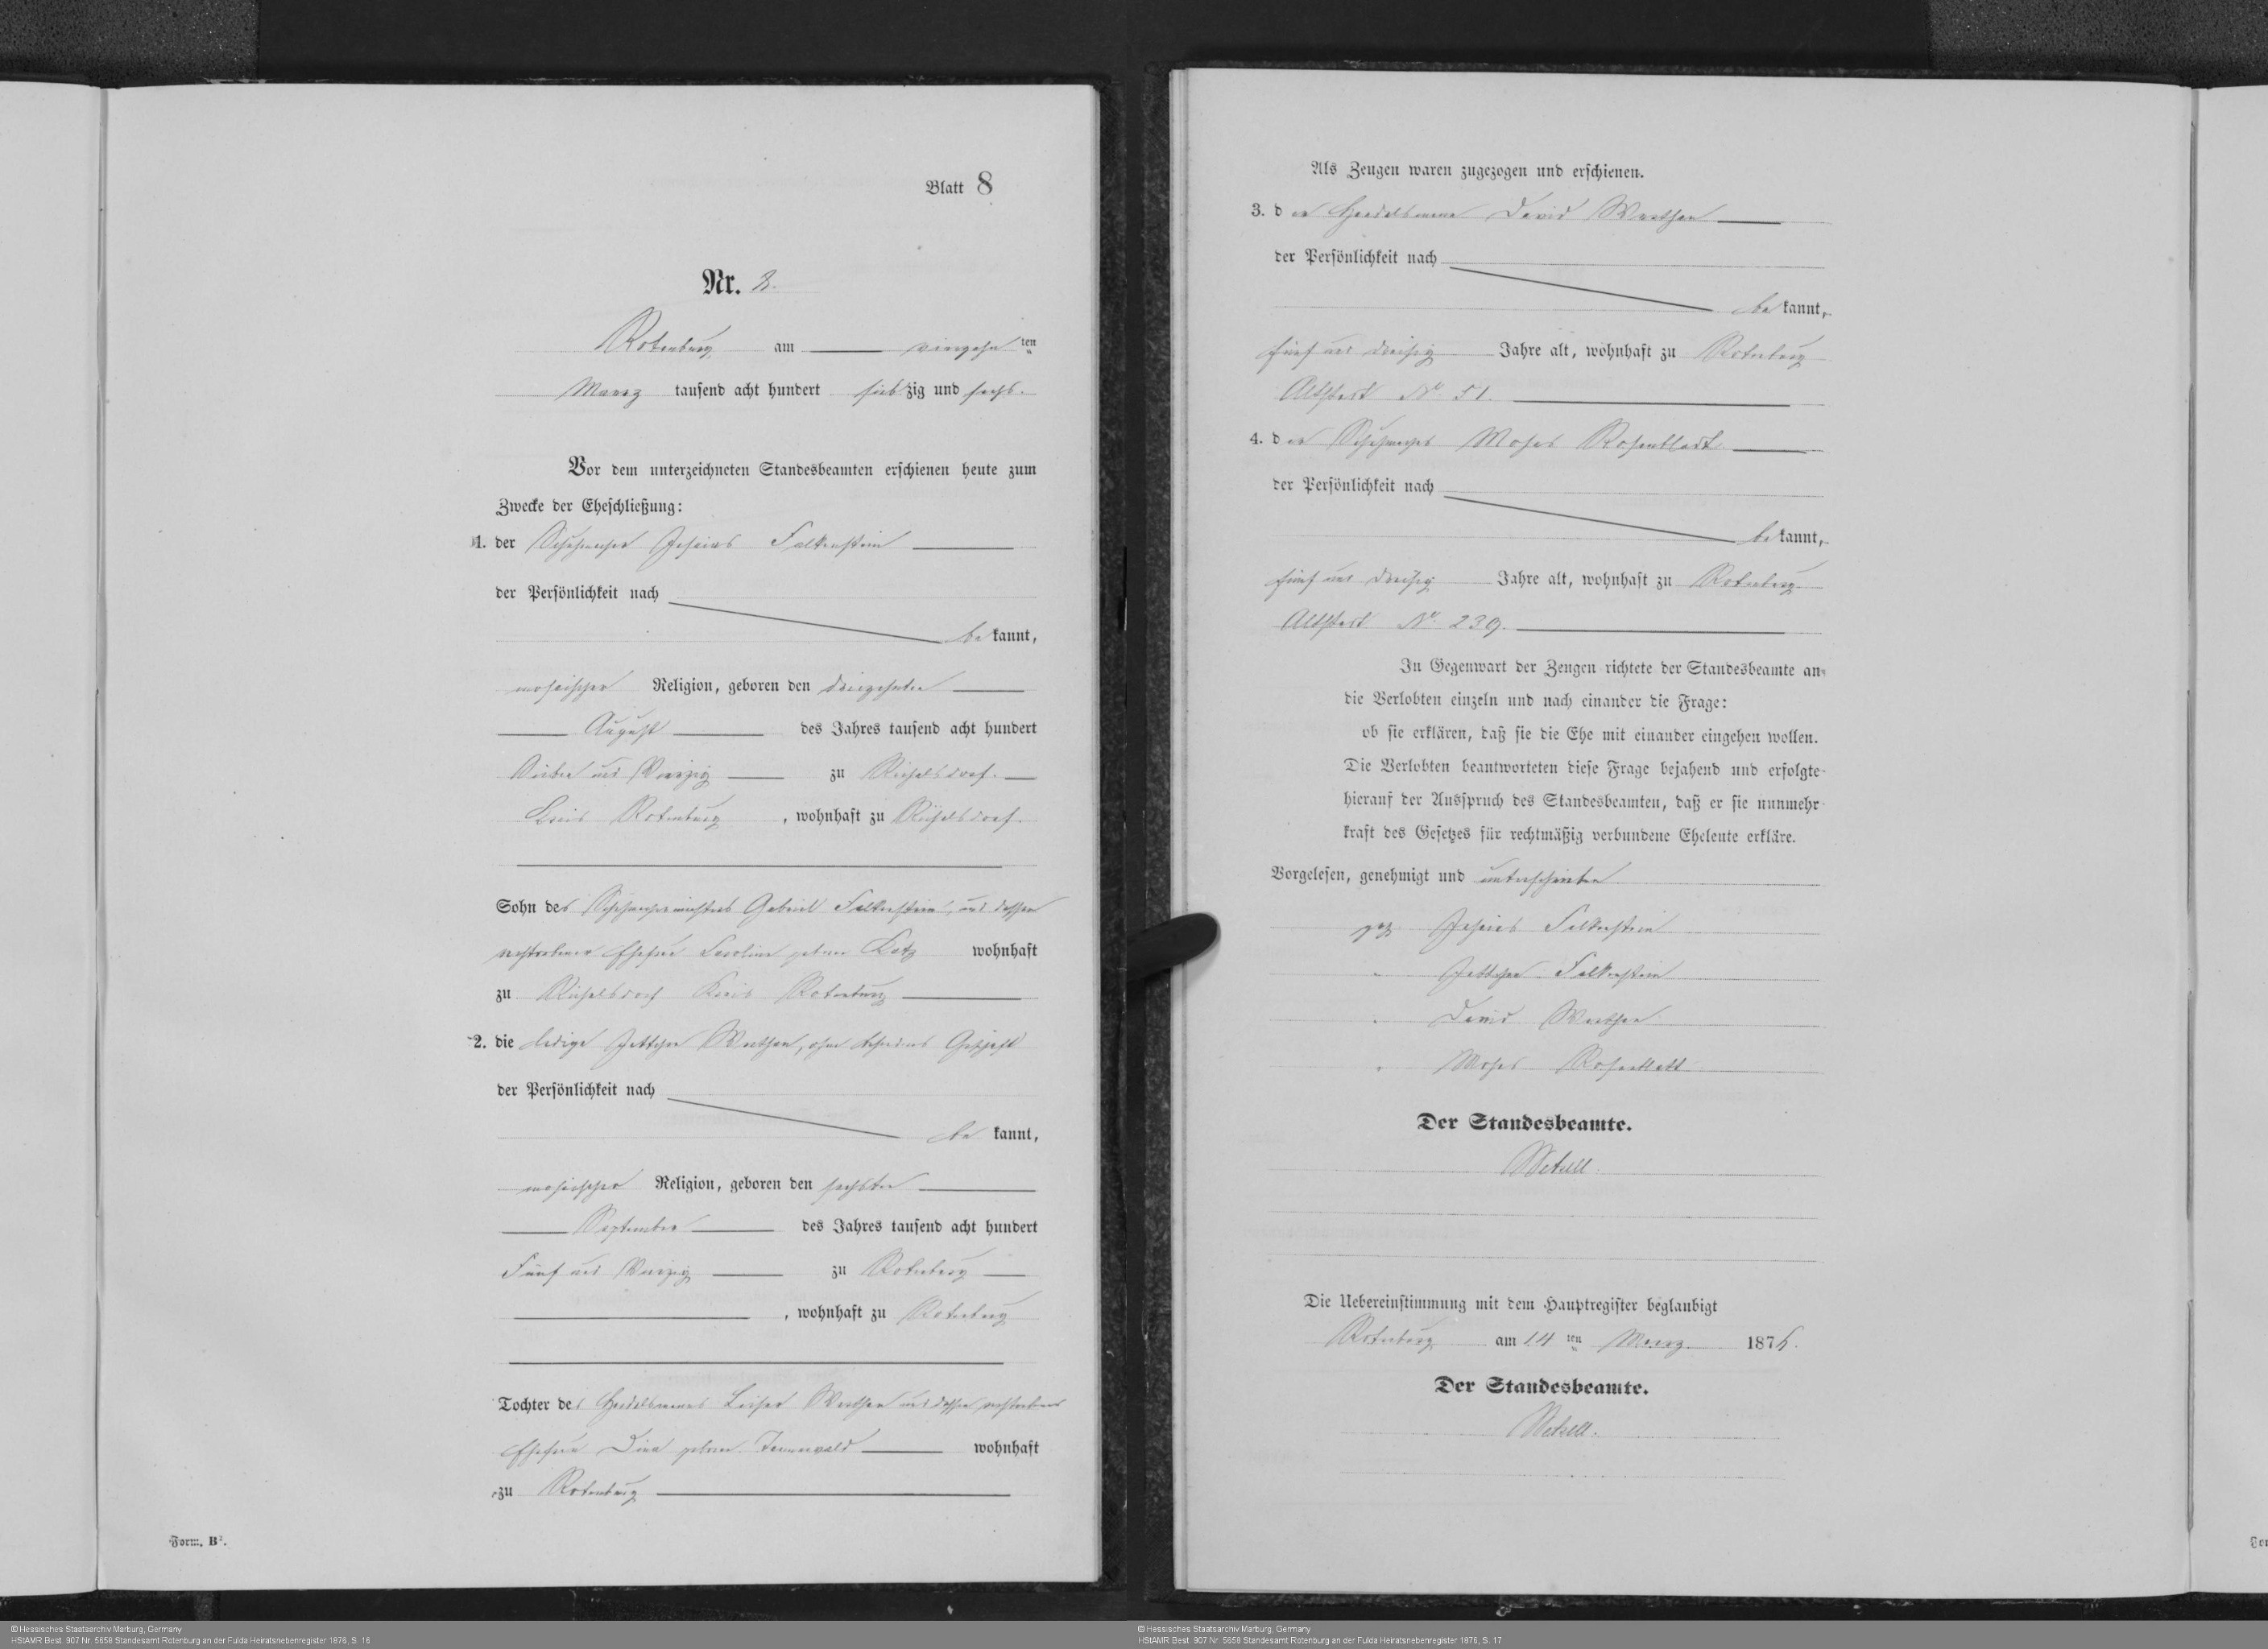 Blatt 8
Nr. 8.
Rotenburg am vierzehn ten
Maerz tausend acht hundert siebzig und sechs.
Vor dem unterzeichneten Standesbeamten erschienen heute zum
Zwecke der Eheschließung:
1. der Schuhmacher Jesaias Falkenstein
der Persönlichkeit nach
bekannt,
mosaischer Religion, geboren den dreizehnten
August des Jahres tausend acht hundert
Sieben und Vierzig zu Richelsdorf.
Kreis Rotenburg, wohnhaft zu Richelsdorf.
Sohn des Schuhmachermeisters Gabriel Falkenstein, und dessen
verstorbener Ehefrau Caroline geborne Katz wohnhaft
zu Richelsdorf Kreis Rotenburg
2. die ledige Jettchen Werthan, ohne besonderes Geschäft
der Persönlichkeit nach
bekannt,
mosaischer Religion, geboren den sechsten
September des Jahres tausend acht hundert
Fünf und Vierzig zu Rotenburg
, wohnhaft zu Rotenburg
Tochter des Handelsmannes Leiser Werthan und dessen verstorbene
Ehefrau Dina geborne wohnhaft
zu Rotenburg
Form. B².
Als Zeugen waren zugezogen und erschienen.
3. der Handelsmann David Werthan
der Persönlichkeit nach
bekannt,
fünf und dreißig Jahre alt, wohnhaft zu Rotenburg
Altstadt No 51.
4. der Schuhmacher Moses Rosenblatt
der Persönlichkeit nach
bekannt,
fünf und dreißig Jahre alt, wohnhaft zu Rotenburg
Altstadt No. 239.
In Gegenwart der Zeugen richtete der Standesbeamte an
die Verlobten einzeln und nach einander die Frage:
ob sie erklären, daß sie die Ehe mit einander eingehen wollen.
Die Verlobten beantworteten diese Frage bejahend und erfolgte
hierauf der Ausspruch des Standesbeamten, daß er sie nunmehr
kraft des Gesetzes für rechtmäßig verbundene Eheleute erkläre.
Vorgelesen, genehmigt und unterschrieben
gez Jesaias Falkenstein
" Jettchen Falkenstein
" David Werthan
" Moses Rosenblatt
Der Standesbeamte.
Wetzell.
Die Uebereinstimmung mit dem Hauptregister beglaubigt
Rotenburg am 14 ten Maerz 1876.
Der Standesbeamte.
Wetzell.
© Hessisches Staatsarchiv Marburg, Germany
HStAMR Best. 907 Nr. 5658 Standesamt Rotenburg an der Fulda Heiratsnebenregister 1876, S. 16
© Hessisches Staatsarchiv Marburg, Germany
HStAMR Best. 907 Nr. 5658 Standesamt Rotenburg an der Fulda Heiratsnebenregister 1876, S. 17